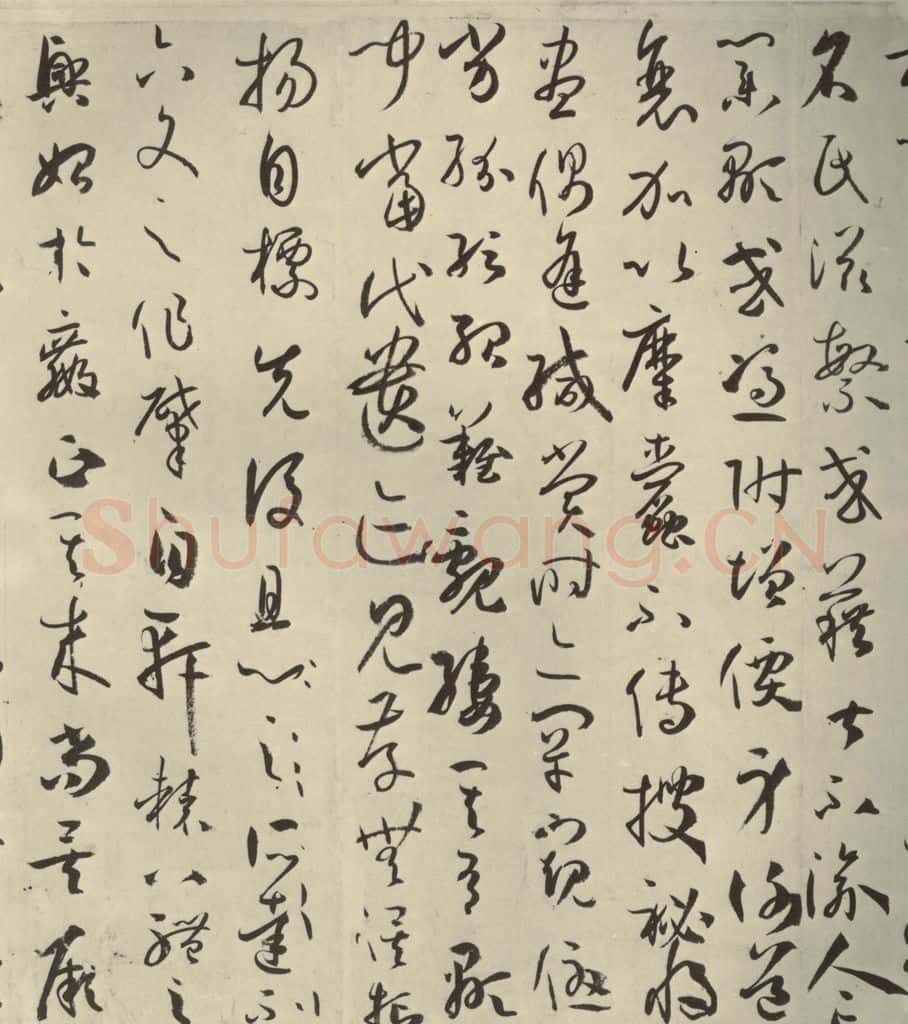 名氏滋繁或藉甚不渝人亡
業顯或憑附增價身謝道
衰加以糜蠹不傳搜祕將
盡偶逢緘賞時亦罕窺優
劣紛紜殆難覼縷其有顯
聞當代遺迹見存無俟抑
揚自標先後且心之所達不
六文之作肇自軒轅八體之
興始於嬴政其來尚矣厥
Shufawang.CN